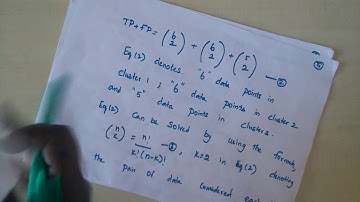 ⑤
TP+FP = (6 2) + (6 2) + (5 2) — ②
Eq(2) denotes "6" data points in
cluster 1, "6" data points in cluster 2
and "5" data points in cluster 3.
Eq(2) Can be solved by using the formula,
(n k) = n! / k!(n-k)! — ③, k=2 in Eq(2) denoting
the pair of data Considered